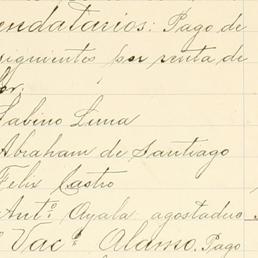 endatarios: Pago de
siguientes por renta de
or.
Sabino Luna
Abraham de Santiago
Felix Castro
Ant.º Ayala agostadero
Vac.ª Alamo. Pago